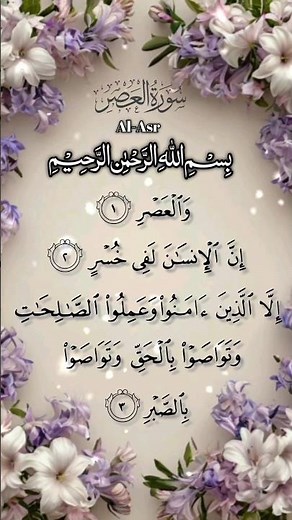 سورة العصر
Al-Asr
بِسْمِ اللهِ الرَّحْمٰنِ الرَّحِيْمِ
وَٱلْعَصْرِ ١
إِنَّ ٱلْإِنسَـٰنَ لَفِى خُسْرٍ ٢
إِلَّا ٱلَّذِينَ ءَامَنُوا۟ وَعَمِلُوا۟ ٱلصَّـٰلِحَـٰتِ
وَتَوَاصَوْا۟ بِٱلْحَقِّ وَتَوَاصَوْا۟
بِٱلصَّبْرِ ٣